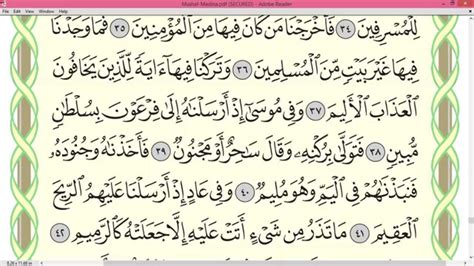 Mushaf-Medina.pdf (SECURED) - Adobe Reader
لِلْمُسْرِفِينَ ٣٤ فَأَخْرَجْنَا مَن كَانَ فِيهَا مِنَ ٱلْمُؤْمِنِينَ ٣٥ فَمَا وَجَدْنَا
فِيهَا غَيْرَ بَيْتٍ مِّنَ ٱلْمُسْلِمِينَ ٣٦ وَتَرَكْنَا فِيهَآ ءَايَةً لِّلَّذِينَ يَخَافُونَ
ٱلْعَذَابَ ٱلْأَلِيمَ ٣٧ وَفِى مُوسَىٰٓ إِذْ أَرْسَلْنَٰهُ إِلَىٰ فِرْعَوْنَ بِسُلْطَٰنٍ
مُّبِينٍ ٣٨ فَتَوَلَّىٰ بِرُكْنِهِۦ وَقَالَ سَٰحِرٌ أَوْ مَجْنُونٌ ٣٩ فَأَخَذْنَٰهُ وَجُنُودَهُۥ
فَنَبَذْنَٰهُمْ فِى ٱلْيَمِّ وَهُوَ مُلِيمٌ ٤٠ وَفِى عَادٍ إِذْ أَرْسَلْنَا عَلَيْهِمُ ٱلرِّيحَ
ٱلْعَقِيمَ ٤١ مَا تَذَرُ مِن شَىْءٍ أَتَتْ عَلَيْهِ إِلَّا جَعَلَتْهُ كَٱلرَّمِيمِ ٤٢
8.26 x 11.69 in